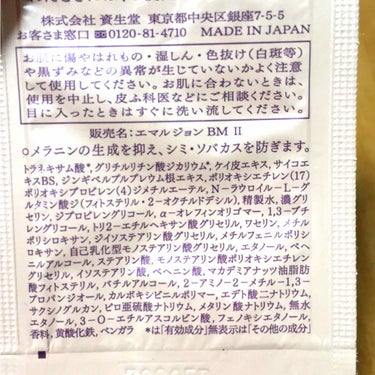 株式会社 資生堂 東京都中央区銀座7-5-5
お客さま窓口 0120-81-4710 MADE IN JAPAN
お肌に傷やはれもの・湿しん・色抜け(白斑等)
や黒ずみなどの異常が生じていないかよく注意
して使用してください。お肌に合わないときは、
使用を中止し、皮ふ科医などにご相談ください。
目に入ったときはすぐに洗い流してください。
販売名:エマルジョン BM II
○メラニンの生成を抑え、シミ・ソバカスを防ぎます。
トラネキサム酸*,グリチルリチン酸ジカリウム*,ケイ皮エキス,サイコエ
キスBS,ジンギベルアルブレウム根エキス,ポリオキシエチレン(17)
ポリオキシプロピレン(4)ジメチルエーテル,N-ラウロイル-L-グ
ルタミン酸ジ(フィトステリル・2-オクチルドデシル),精製水,濃グリ
セリン,ジプロピレングリコール,α-オレフィンオリゴマー,1,3-ブチ
レングリコール,トリ2-エチルヘキサン酸グリセリル,ワセリン,メチル
ポリシロキサン,ジイソステアリン酸グリセリル,メチルフェニルポリシ
ロキサン,自己乳化型モノステアリン酸グリセリル,エタノール,ベヘ
ニルアルコール,ステアリン酸,モノステアリン酸ポリオキシエチレング
リセリル,イソステアリン酸,ベヘニン酸,マカデミアナッツ油脂肪
酸フィトステリル,バチルアルコール,2-アミノ-2-メチル-1,3-
プロパンジオール,カルボキシビニルポリマー,エデト酸二ナトリウム,
サクシノグルカン,ピロ亜硫酸ナトリウム,メタリン酸ナトリウム,無水
エタノール,3-O-エチルアスコルビン酸,フェノキシエタノール,
香料,黄酸化鉄,ベンガラ *は「有効成分」無表示は「その他の成分」